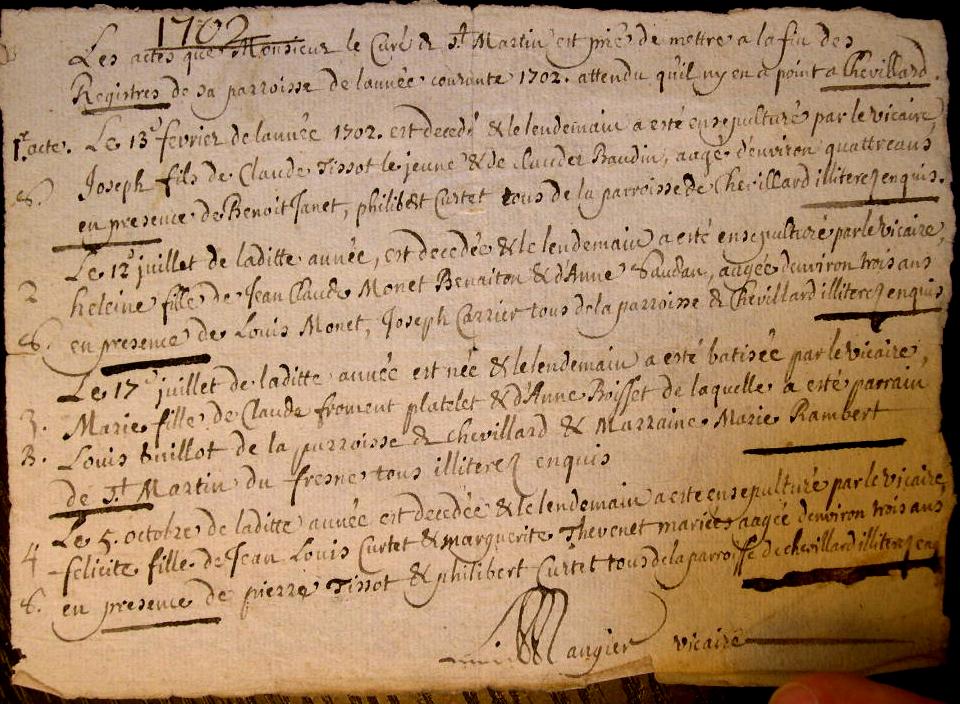 1702
Les actes que Monsieur le Curé de St Martin est prié de mettre a la fin des
Registres de sa parroisse de lannée courante 1702. attendu qu'il ny en a point a Chevillard.
1r. acte. Le 13e fevrier de lannée 1702. est decedé & le lendemain a esté ensepulturé par le vicaire,
S. Joseph fils de Claude Tissot le jeune & de Baudin, aagé d'environ quattre ans
en presence de Benoit Janet, philibert Curtet tous de la parroisse de Chevillard illiterez enquis.
Le 12e juillet de laditte année, est decedée & le lendemain a esté ensepulturé par le vicaire,
2 heleine fille de Jean Claude Monet Benaiton & d'Anne Saudan, aagée denviron trois ans
S. en presence de Louis Monet, Joseph Carrier tous de la parroisse de Chevillard illiterez enquis
Le 17e juillet de laditte année est née & le lendemain a esté batisée par le vicaire,
3. Marie fille de Claude froment platelet & d'Anne Boisset de laquelle a esté parrain
B. Louis Juillot de la parroisse de Chevillard & Marraine Marie Rambert
de St Martin du fresne tous illiterez enquis
Le 5. octobre de laditte année est decedée & le lendemain a esté ensepulturé par le vicaire,
4 felicite fille de Jean Louis Curtet & marguerite Thevenet mariés aagée denviron trois ans
S. en presence de pierre Tissot & philibert Curtet tous de la parroisse de chevillard illiterez enq
Maugier vicaire